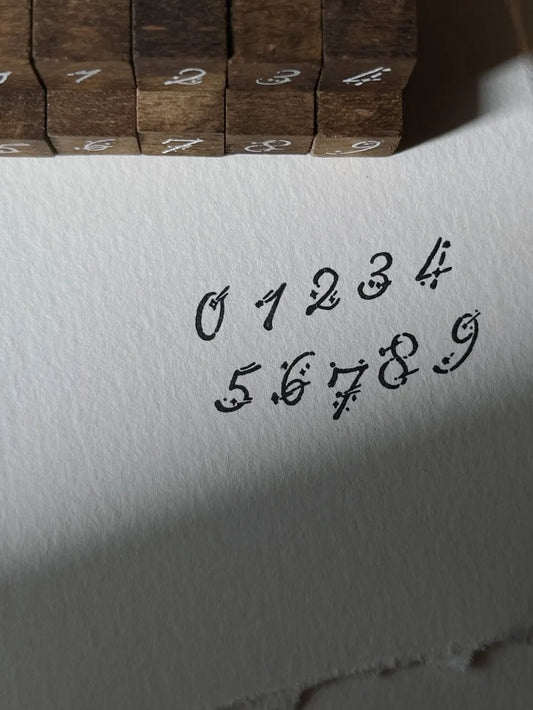 1 2 3 4
5 6 7 8 9
0 1 2 3 4
5 6 7 8 9